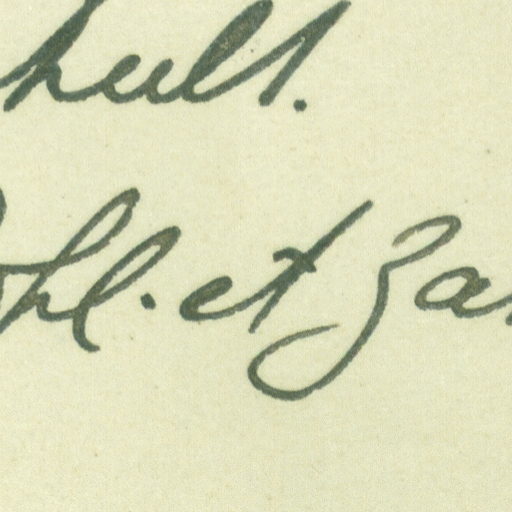 hult.
ohl. et Za